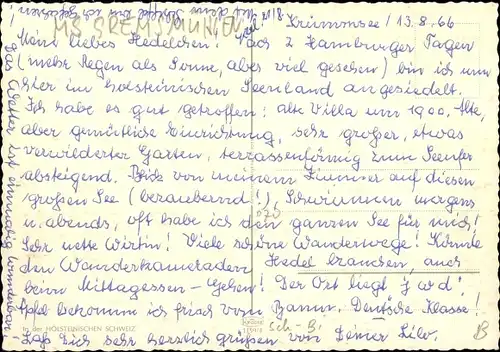 MS GREMSMÜHLEN
Krummsee / 13.8.66
Mein liebes Hedelchen! Nach 2 Hamburger Tagen
(mehr Regen als Sonne, aber viel gesehen) bin ich nun
hier im holsteinischen Seenland angesiedelt.
Ich habe es gut getroffen: alte Villa um 1900, alte,
aber gemütliche Einrichtung, sehr großer, etwas
verwilderter Garten, terrassenförmig zum Seeufer
absteigend. Blick von meinem Zimmer auf diesen
großen See (bezaubernd!), Schwimmen morgens
u. abends, oft habe ich den ganzen See für mich!
Sehr nette Wirtin! Viele schöne Wanderwege! Könnte
den Wanderkameraden Hedel brauchen, auch
beim Mittagessen-Gehen! Der Ort liegt j w d!
Äpfel bekomm ich frisch vom Baum, Deutsche Klasse!
In der HOLSTEINISCHEN SCHWEIZ
Sch-B.
B
Laß Dich sehr herzlich grüßen von Deiner Lilo.
Das Wetter ist